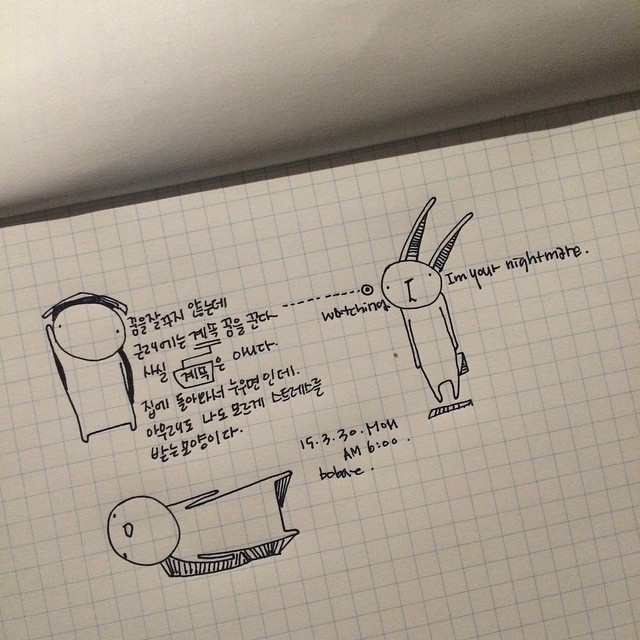 꿈을잘꾸지 않는데
근래에는 계속 꿈을 꾼다
사실 계속은 아니다.
집에 돌아와서 누우면 인데.
아무래도 나도 모르게 스트레스를
받는모양이다.
watching
Im your nightmare.
15.3.30.Mon
AM 6:00.